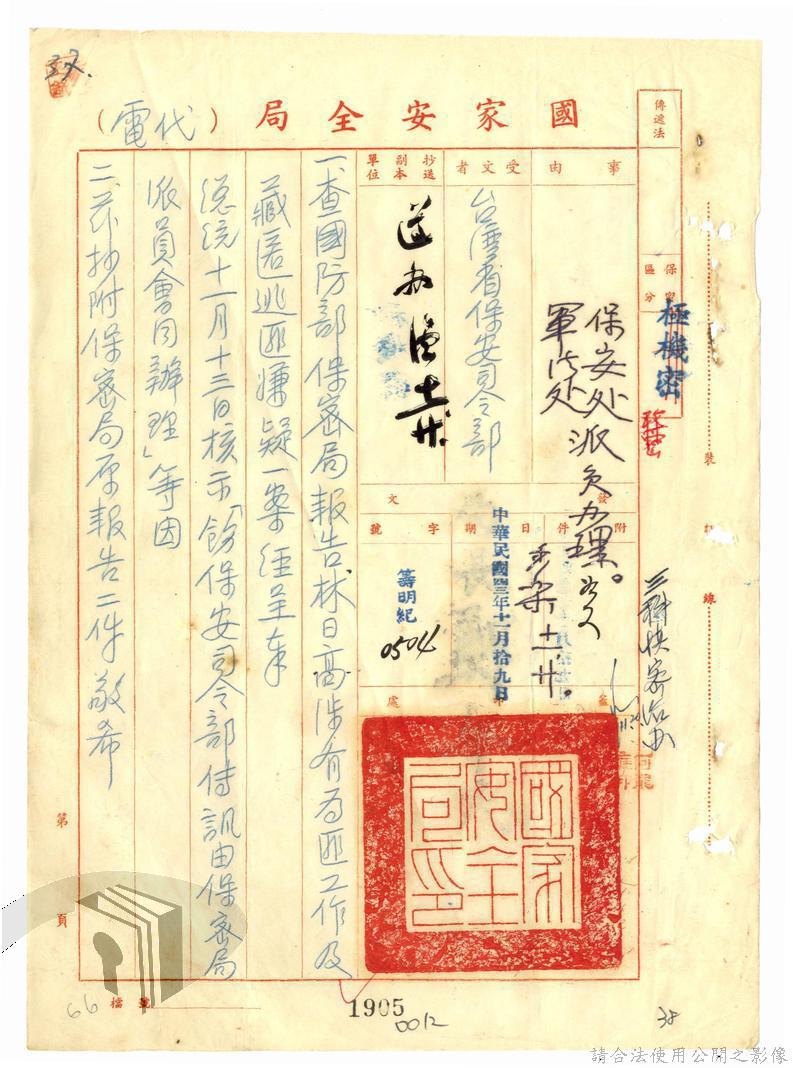 國家安全局（代電）
傳遞法
保密區分
極機密
事由
受文者
台灣省保安司令部
抄送副本單位
保安处
軍法处派员办理。
發文
附件
日期
中華民國四三年十一月拾九日
字號
籌明紀
0504
蓋印處
國家安全局印
一、查國防部保密局報告林日高涉有為匪工作及
藏匿逃匪嫌疑一案經呈奉
總統十一月十三日核示「飭保安司令部傳訊由保密局
派員會同辦理」等因
二、茲抄附保密局原報告二件敬希
裝
訂
線
第
頁
檔號
66
1905
0012
38
37.
請合法使用公開之影像